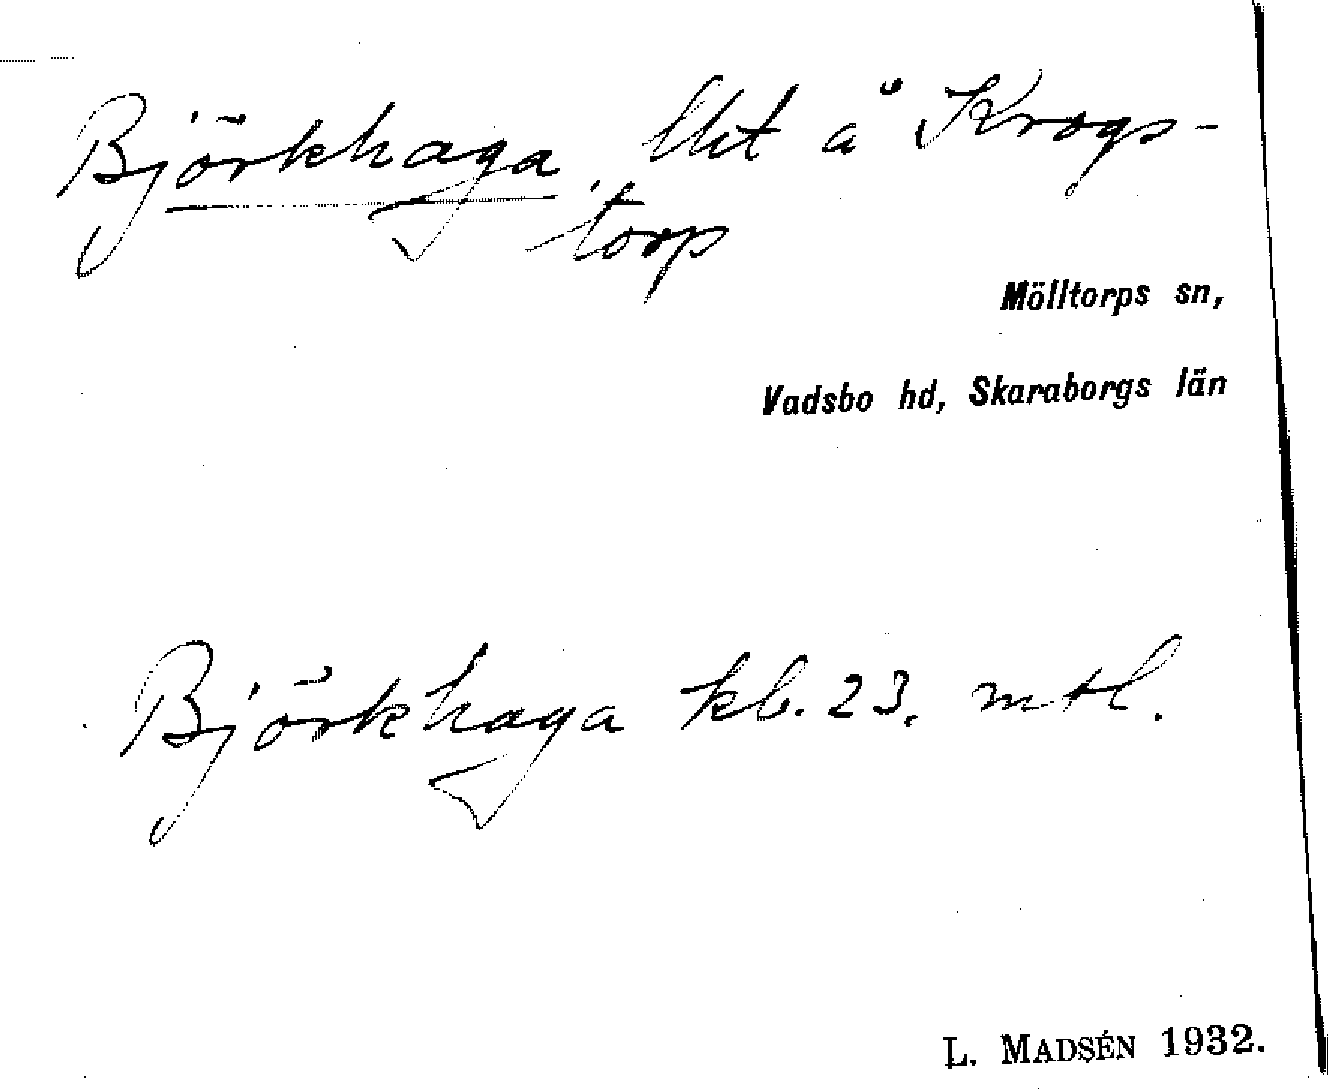 Björkhaga lht å Krogs-
torp
Mölltorps sn,
Vadsbo hd, Skaraborgs län
Björkhaga kb. 23. mtl.
L. MADSÉN 1932.